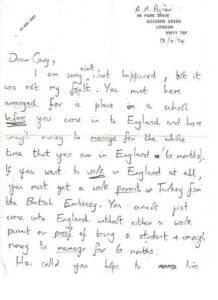 A. M. Pozier
PARK DRIVE
GOLDERS GREEN
LONDON
NW11 7SP
13/11/74
Dear Cary,
I am sorry about what happened, but it
was not my fault. You must have
arranged for a place in a school
before you come in to England and have
enough money to manage for the whole
time that you are in England (6 months).
If you want to work in England at all,
you must get a work permit in Turkey from
the British Embassy. You cannot just
come into England without either a work
permit or proof of being a student + enough
money to manage for 6 months.
How could you hope to live